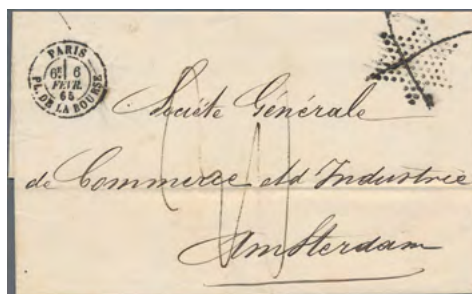 PARIS
6E 6
FEVR.
65
PL. DE LA BOURSE
Société Générale
de Commerce et d'Industrie
Amsterdam